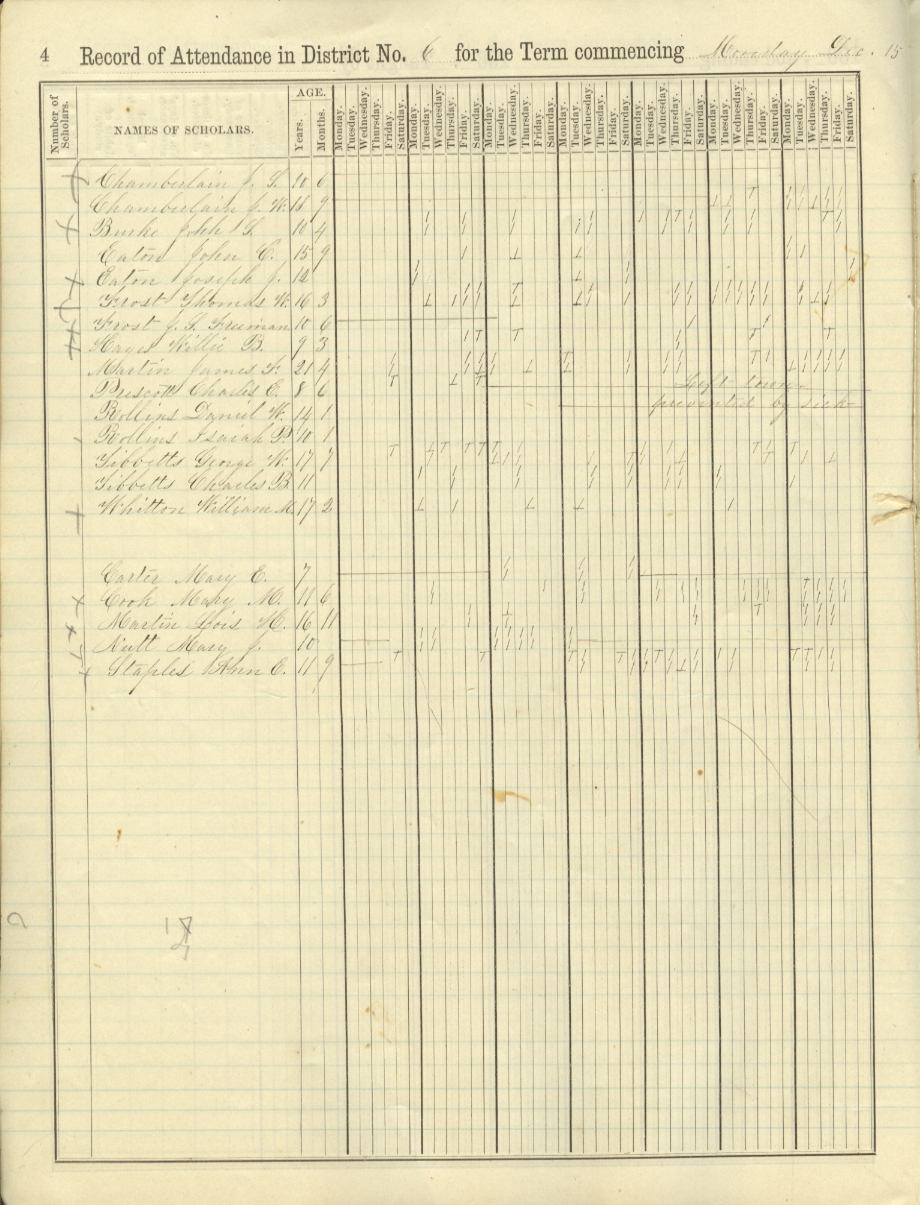 4 Record of Attendance in District No. 6 for the Term commencing Monday Dec. 15
Number of Scholars.
NAMES OF SCHOLARS.
AGE.
Years. Months.
Monday. Tuesday. Wednesday. Thursday. Friday. Saturday. Monday. Tuesday. Wednesday. Thursday. Friday. Saturday. Monday. Tuesday. Wednesday. Thursday. Friday. Saturday. Monday. Tuesday. Wednesday. Thursday. Friday. Saturday. Monday. Tuesday. Wednesday. Thursday. Friday. Saturday. Monday. Tuesday. Wednesday. Thursday. Friday. Saturday. Monday. Tuesday. Wednesday. Thursday. Friday. Saturday.
Chamberlain J. S. 20 6
Chamberlain J. W. 18 9
Burke John S. 10 4
Eaton John C. 15 9
Eaton Joseph J. 12
Frost Thomas W. 16 3
Frost J. S. Freeman 10 6
Hayes Willie B. 9 3
Martin James F. 21 4
Prescott Charles E. 8 6 Left town
Rollins Daniel W. 14 1 prevented by sick
Rollins Isaiah P. 10 1
Tibbetts George W. 17 7
Tibbetts Charles B 11
Whitton William M. 17 2
Carter Mary E. 7
Cook Mary M. 11 6
Martin Lois H. 16 11
Nutt Mary J. 10
Staples Ann E. 11 9